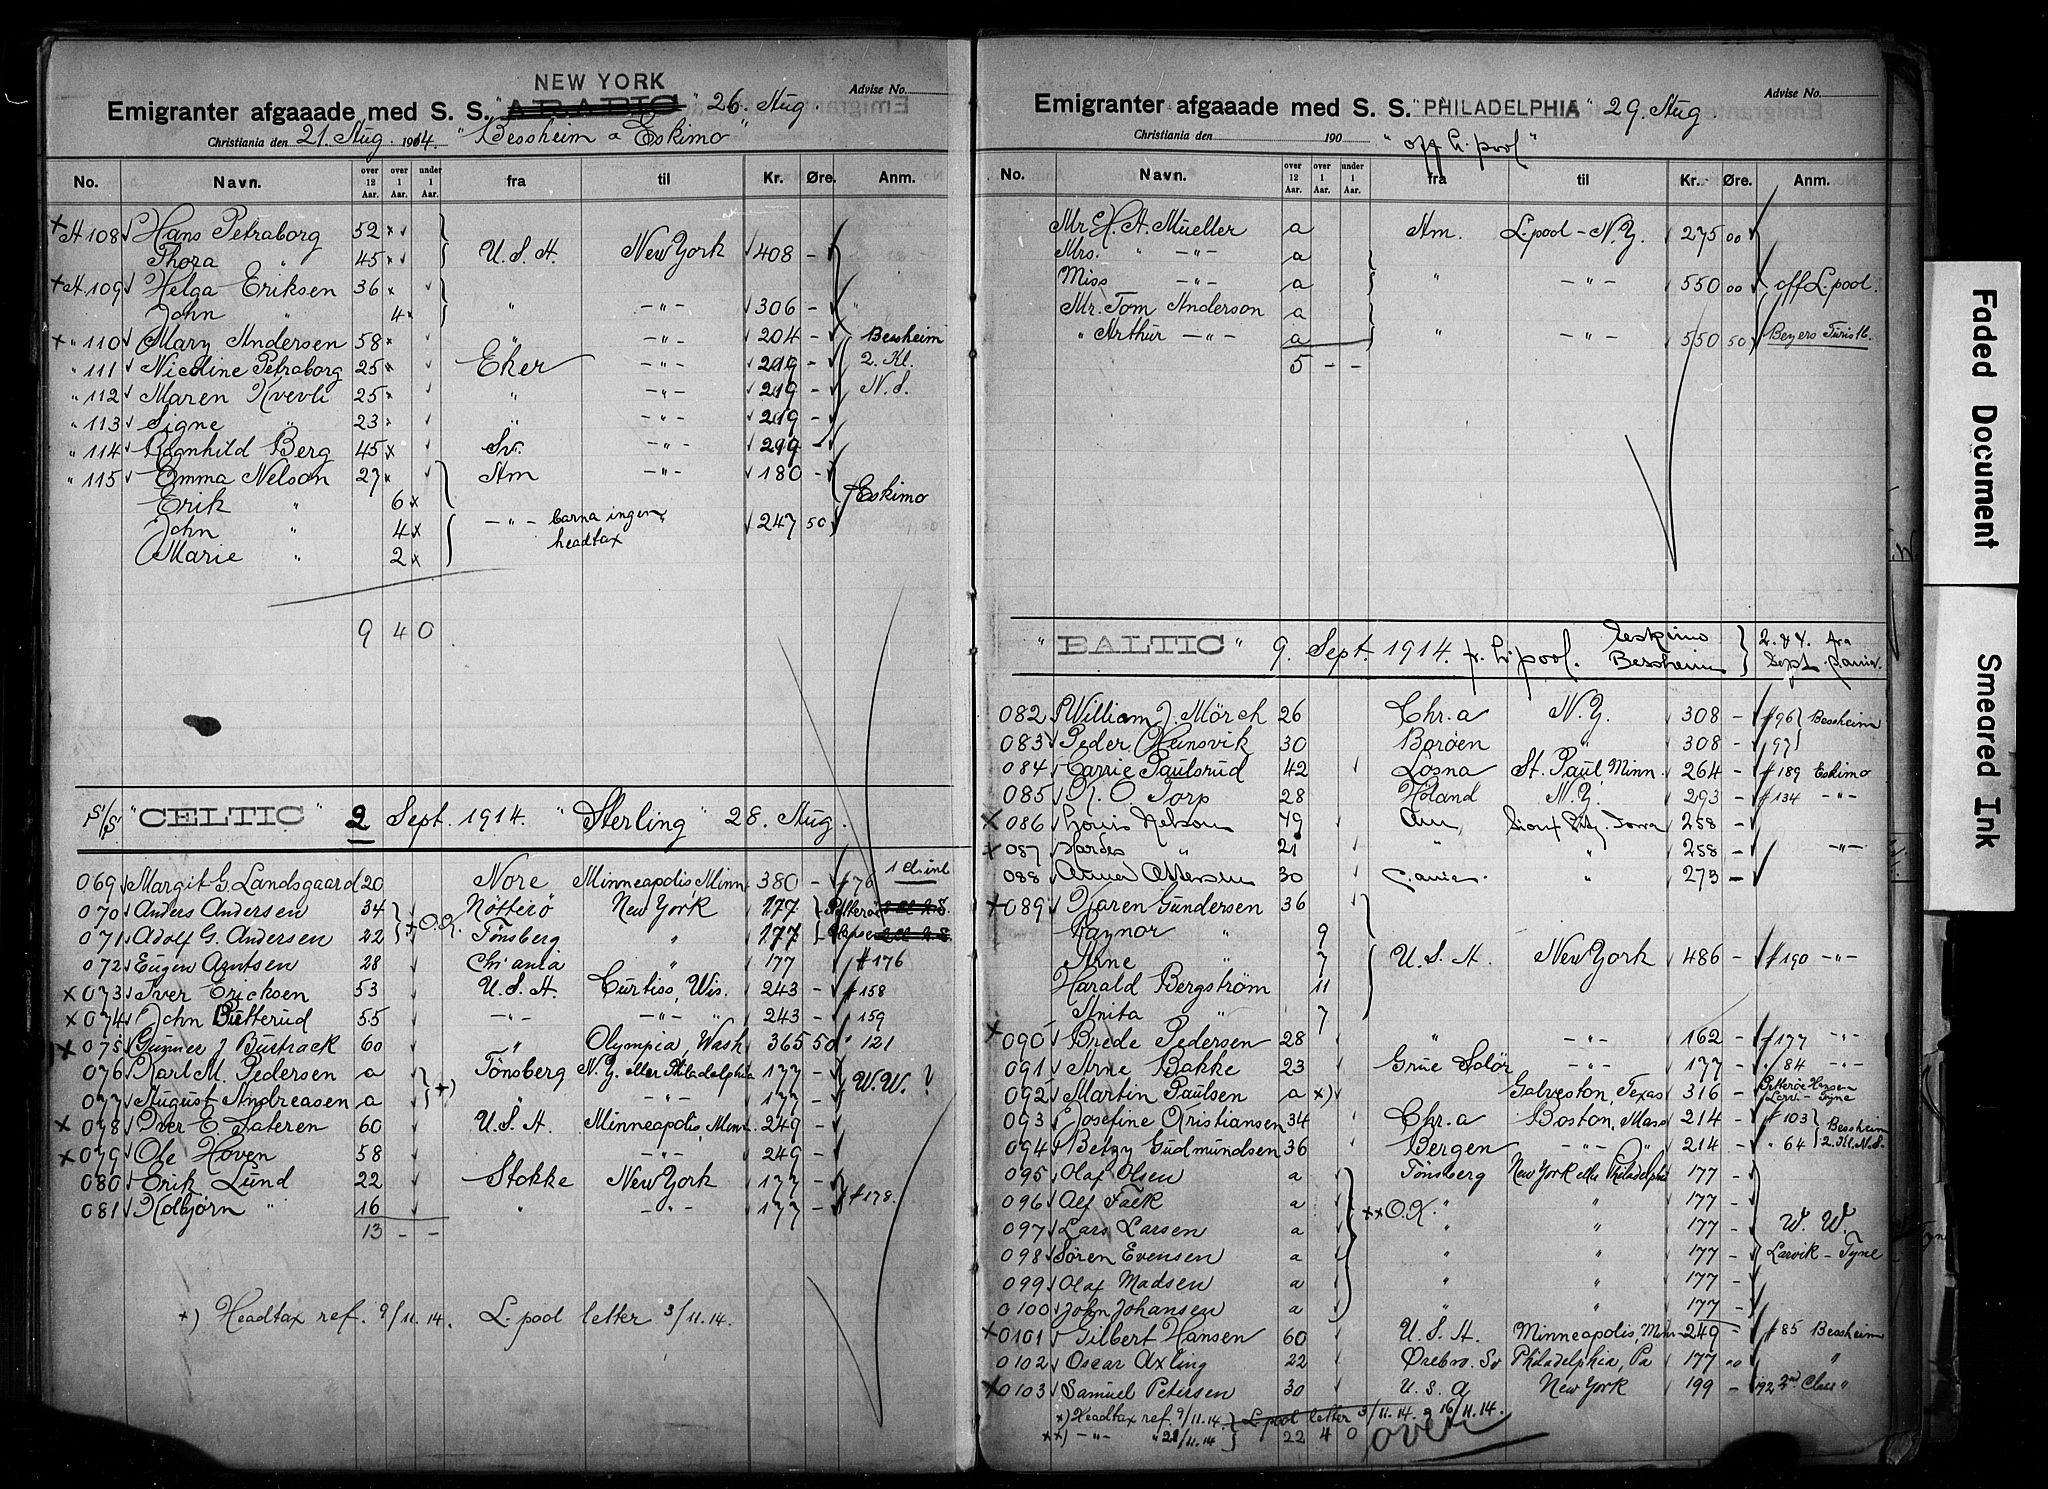 NEW YORK
Advise No.
Emigranter afgaaade med S. S. "ARABIC" 26. Aug
Christiania den 21. Aug. 1914. "Bessheim a Eskimo"
No. Navn. over 12 Aar. over 1 Aar. under 1 Aar. fra til Kr. Øre. Anm.
A 108 Hans Petraborg 52
Thora " 45 U.S.A. New York 408 -
A. 109 Helga Eriksen 36
John " 4 " -"- 306 - "
" 110 Mary Andersen 58 " -"- 204 - Bessheim
" 111 Nicoline Petraborg 25 Eker -"- 219 - 2. Kl.
" 112 Maren Kvevli 25 " -"- 219 - N.S.
" 113 Signe " 23 " -"- 219 -
" 114 Ragnhild Berg 45 Sv. -"- 299 -
" 115 Emma Nelson 27 Am -"- 180 -
Erik " 6 Eskimo
John " 4 -"- barna ingen 247 50
Marie " 2 headtax
9 4 0
S/S. "CELTIC" 2 Sept. 1914. "Sterling" 28. Aug.
1 d. inl
069 Margit G. Landsgaard 20 Nore Minneapolis, Minn. 380 - # 76
070 Anders Andersen 34 Nötterö New York 177
071 Adolf G. Andersen 22 O.K. Tönsberg " 177
072 Eugen Arntsen 28 Chr ania " 177 # 176
073 Iver Ericksen 53 U.S.A. Curtiss, Wis. 243 - # 158
074 John Butterud 55 -"- -"- " 243 - " 159
075 Gunner J Burtrack 60 " Olympia, Wash 365 50 " 121
076 Karl M. Pedersen a Tönsberg N.Y. eller Philadelphia 177 -
077 August Andreasen a *) " -"- 177 - W.W.?
078 Iver E. Sateren 60 U.S.A. Minneapolis, Minn. 249 -
079 Ole Hoven 58 " -"- 249 -
080 Erik Lund 22 Stokke New York 177 -
081 Kolbjørn " 16 " -"- 177 - # 178.
13 - -
*) Headtax ref. 9/11.14. L.pool letter 3/11.14.
Advise No.
Emigranter afgaaade med S. S. "PHILADELPHIA" 29. Aug.
Christiania den 190 "off L.pool"
No. Navn. over 12 Aar. over 1 Aar. under 1 Aar. fra til Kr. Øre. Anm.
Mr. H. A. Mueller a Am. L.pool - N.Y. 275 00
Mrs. " -"- a
Miss -"- a " -"- 550 00 off L.pool.
Mr. Tom Anderson a
" Arthur -"- a " -"- 550 50 Beyers Turistb.
5 - -
"BALTIC" 9. Sept. 1914. fr. L'pool. Eskimo 2. & 4. fra
Bessheim Sept. C.ania.
082 William J. Mörch 26 Chr.a N.Y. 308 - # 96 Bessheim
083 Peder Heinsvik 30 Boröen " 308 - " 97
084 Carrie Paulsrud 42 Losna St. Paul, Minn. 264 - # 189 Eskimo
085 K. O. Torp 28 Höland N.Y. 293 - # 134 -"-
086 Louis Nelson 49 Am, Sioux City, Iowa 258 -
087 " 21 " " 258 - -"-
088 Anna Ottersen 30 C.ania. " 273 -
089 Karen Gundersen 36
Raynor " 9
Arne " 7 U.S.A. New York 486 - # 190 -"-
Harald Bergström 11
Anita " 7
090 Brede Pedersen 28 " -"- 162 - # 177 -"-
091 Arne Bakke 23 Grue Solör -"- 177 - " 84 -"-
092 Martin Paulsen a *) Galveston, Texas 316 - Petterøe Hansen
Larv. - Tyne
093 Josefine Kristiansen 34 Chr.a Boston, Mass 214 - # 103 Bessheim
094 Betzy Gudmundsen 36 Bergen -"- " 214 - " 64 2. Kl. N.S.
095 Olaf Olsen a Tönsberg New York eller Philadelphia 177 -
096 Alf Falck a **O.K. " " 177 -
097 Lars Larsen a " " 177 - W. W.
098 Sören Evensen a " " 177 - Larvik - Tyne
099 Olaf Madsen a " " 177 -
0100 John Johansen a " " 177 -
0101 Gilbert Hansen 60 U.S.A. Minneapolis, Minn 249 - # 85 Bessheim
0102 Oscar Axling 22 Örebro. Sv Philadelphia, Pa 177 00 "
0103 Samuel Petersen 30 U.S.A New York 199 - 192 2nd Class "
*) Headtax ref. 9/11.14. L.pool letter 3/11.14. & 16/11.14.
**) -"- " 21/11.14 22 4 0 over
Faded Document
Smeared Ink